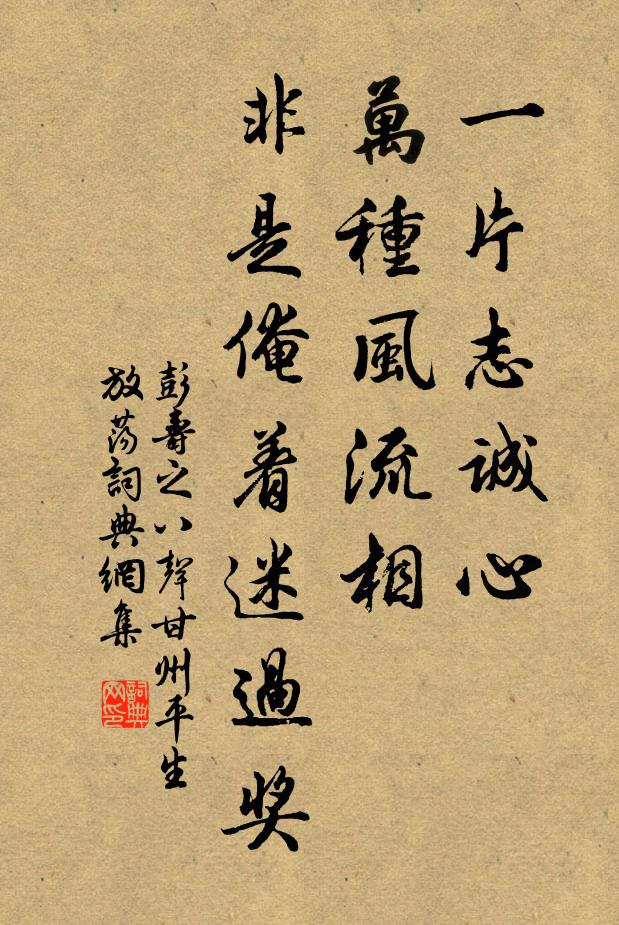 一片志誠心
萬種風流相
非是俺着迷過奖
彭壽之八聲甘州平生
放蕩詞典網集
詞典
网印